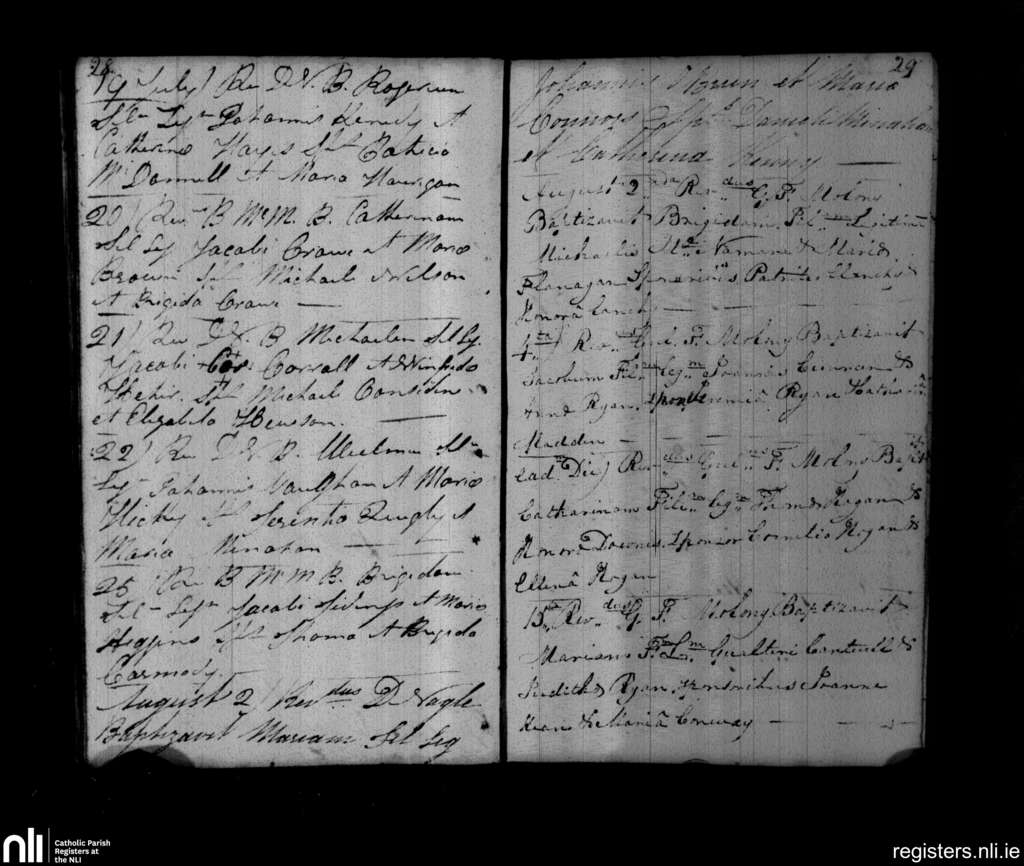 28
19 July) Rev D. N. B. Rogerum
Fil Leg Johannis Kenedy et
Catherine Hayes Spt Patricio
McDonnell et Maria Hourigan
20) Rev B McM. B. Catherinam
Fil Leg Jacobi Crowe et Maria
Brown Spt Michael Nelson
et Brigida Crowe
21) Rev D N. B Michaelem Fil Lg
Jacobi Corrall et Winifrido
Hehir Spt Michael Considin
et Elizabeta Hewson.
22) Rev D N. B.
Leg Johannis Vaughan et Maria
Hickey Spt Quigly et
Maria Minahan
25 Rev B McM B. Brigidam
Fil Leg Jacobi et Maria
Higgins Spt Thoma et Brigida
Carmody.
August 2) Revdus D. Nagle
Baptizavit Mariam Fil Leg
29
Johannis et Maria
Connors Danieli Minahan
et Catherina Kenny
August 2nda Revdus G. F. Molony
Baptizavit Brigidam Fil Legitim
Michaelis McNamara & Maria
Flanagan Patritio Clanchy &
Honorâ Canch
4ta) Rev Gul. F. Molony Baptizavit
Jacobum Fil leg Joannis Cunnan &
Anna Ryan Jeremia Ryan Katharin
Madden
ead. Die) Revdus Gul F. Molony Bapt
Catharinam Fil leg Hogan &
Honora Downes Sponsor Cornelio Hogan &
Ellenâ Hogan
15 Revdus G. F. Molony Baptizavit
Mariam F. L. Gualteri Cantwell &
Judith Ryan sponsoribus Joanne
Kean & Mariâ Conway
nli
Catholic Parish
Registers at
the NLI
registers.nli.ie